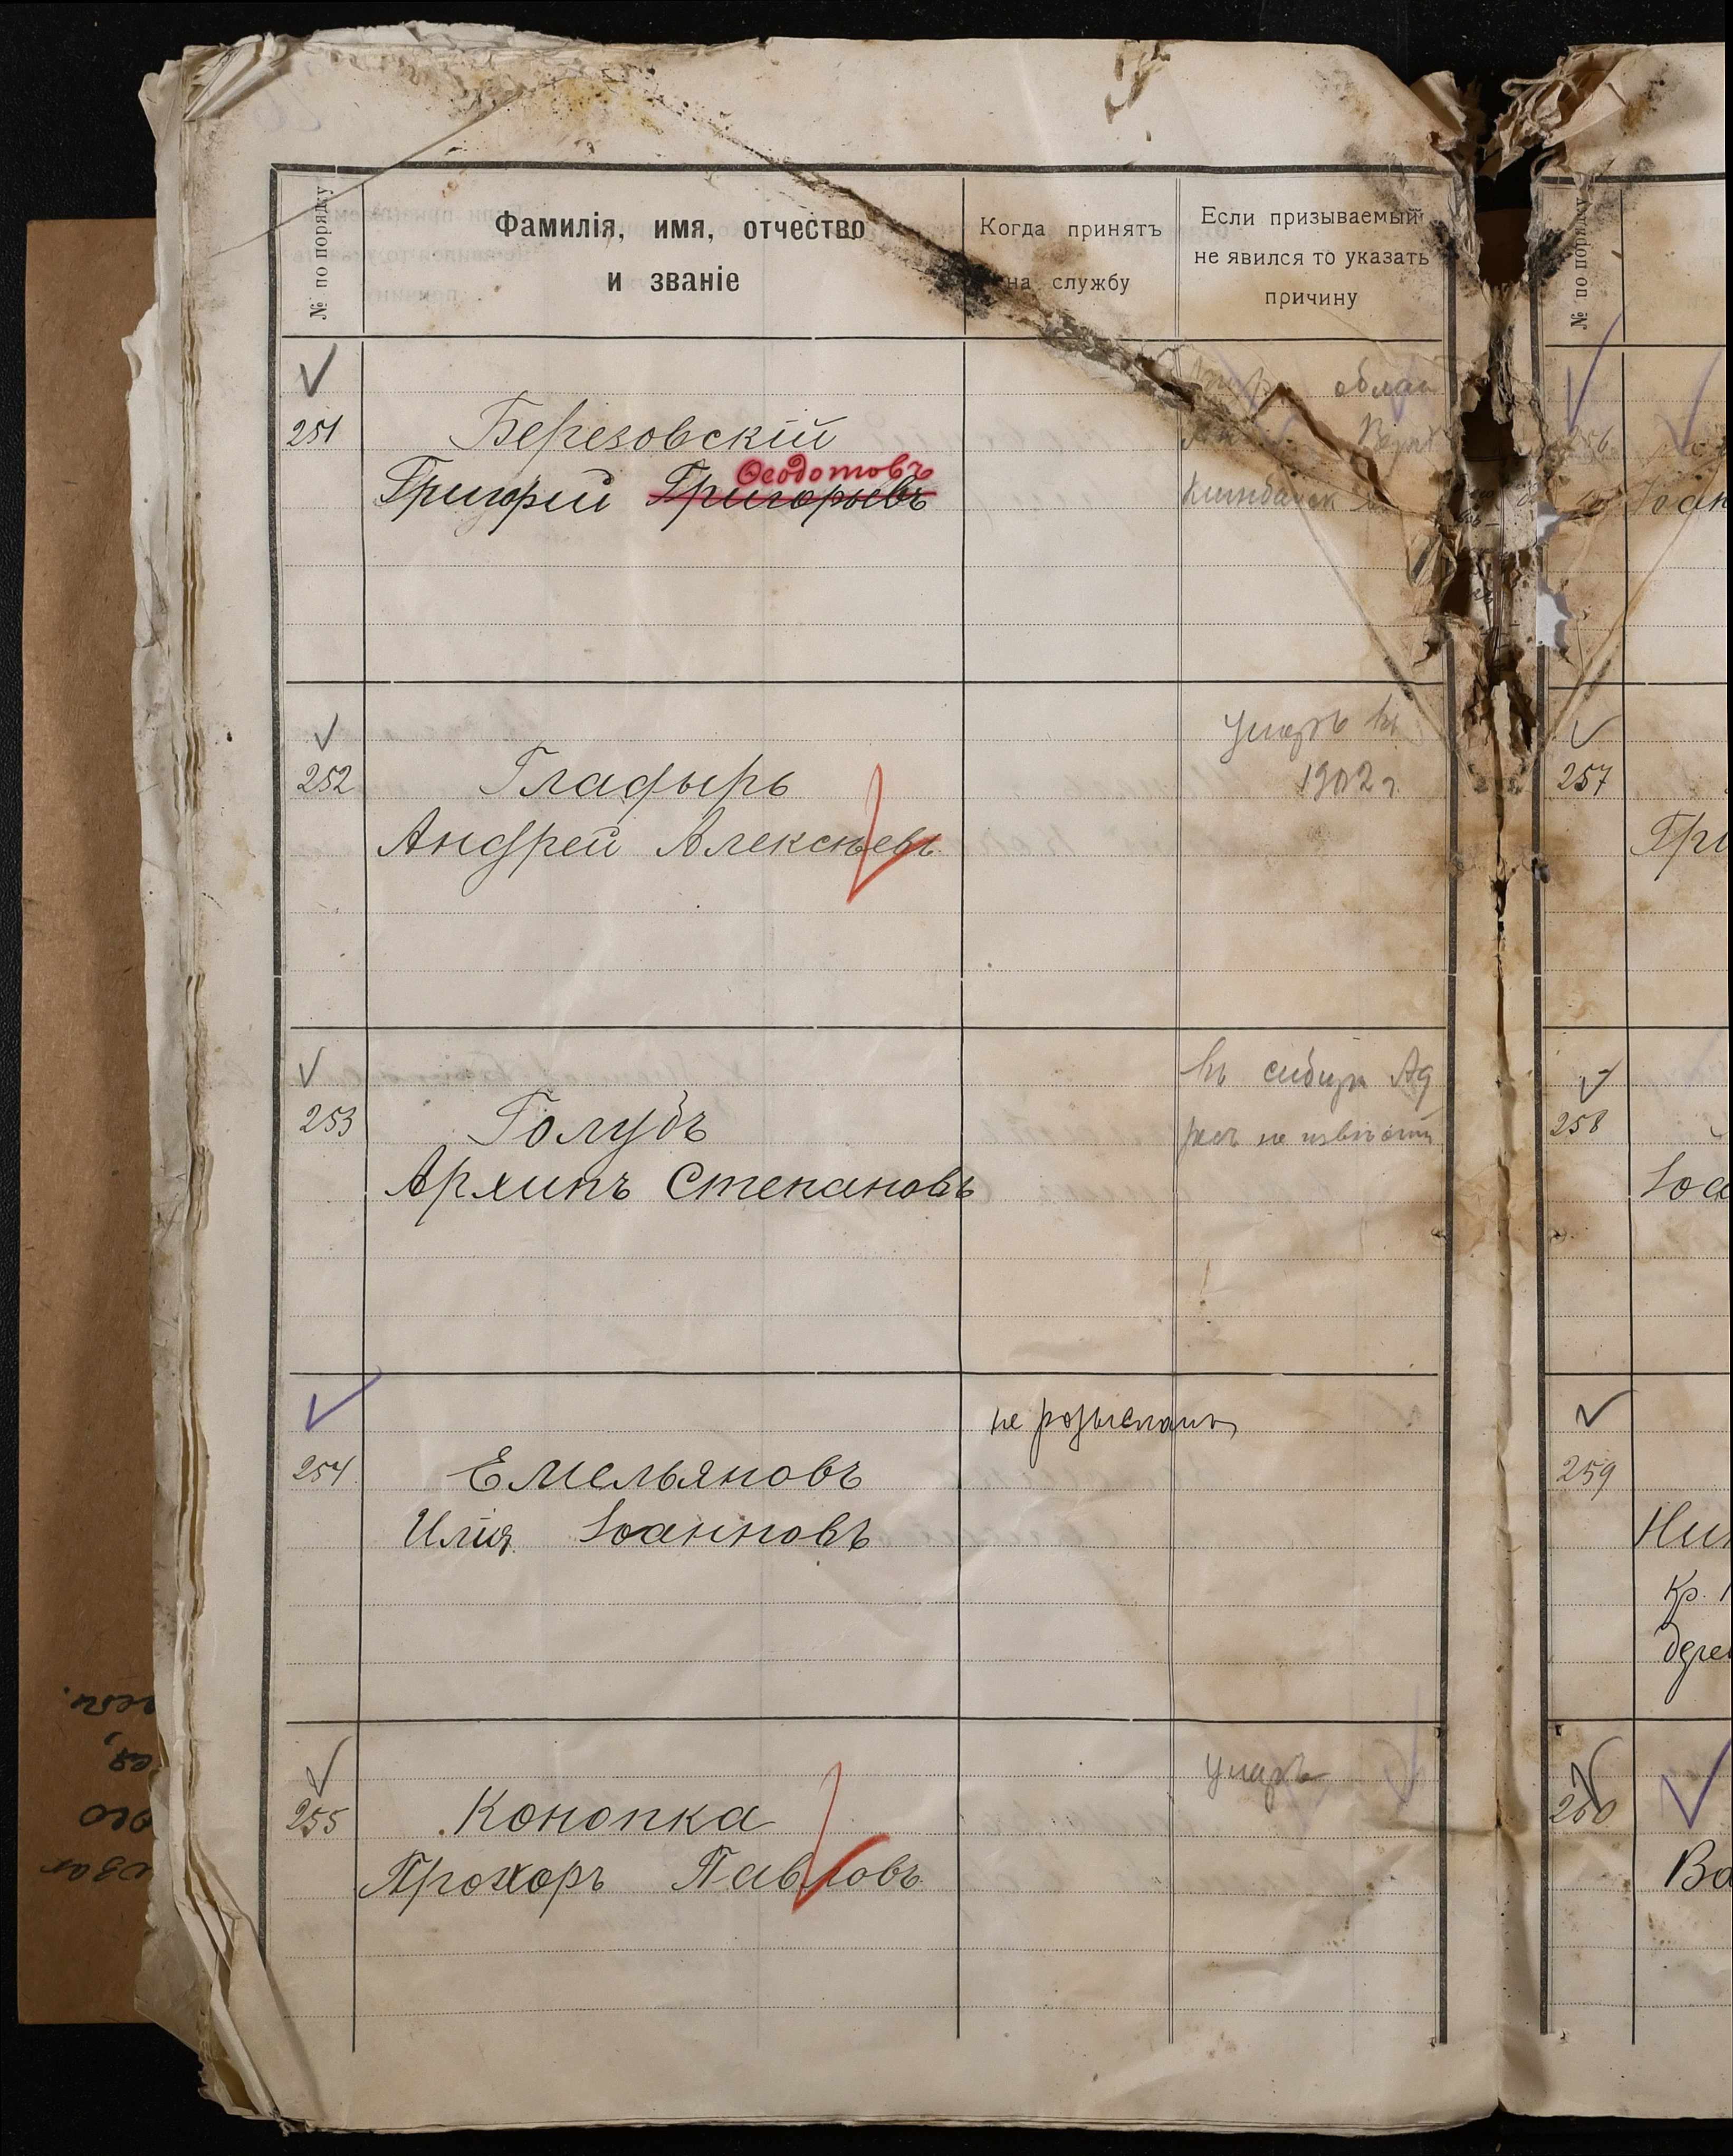 № по порядку
Фамилія, имя, отчество
и званіе
Когда принятъ
на службу
Если призываемый
не явился то указать
причину
облас
251
Березовскій
Ѳеодотовъ
Григорій Григорьевъ
252
Гладырь
Андрей Алексѣевъ
Умеръ въ
1902 г.
253
Голубъ
Архипъ Степановъ
въ сибири Ад
ресъ не извѣстн
254
Емельяновъ
Илія Іоанновъ
не розысканъ
255
Конопка
Прохоръ Павловъ
Умеръ
№ по порядку
257
Гри
258
Іоа
259
Ник
Кр.
дере
260
Ва